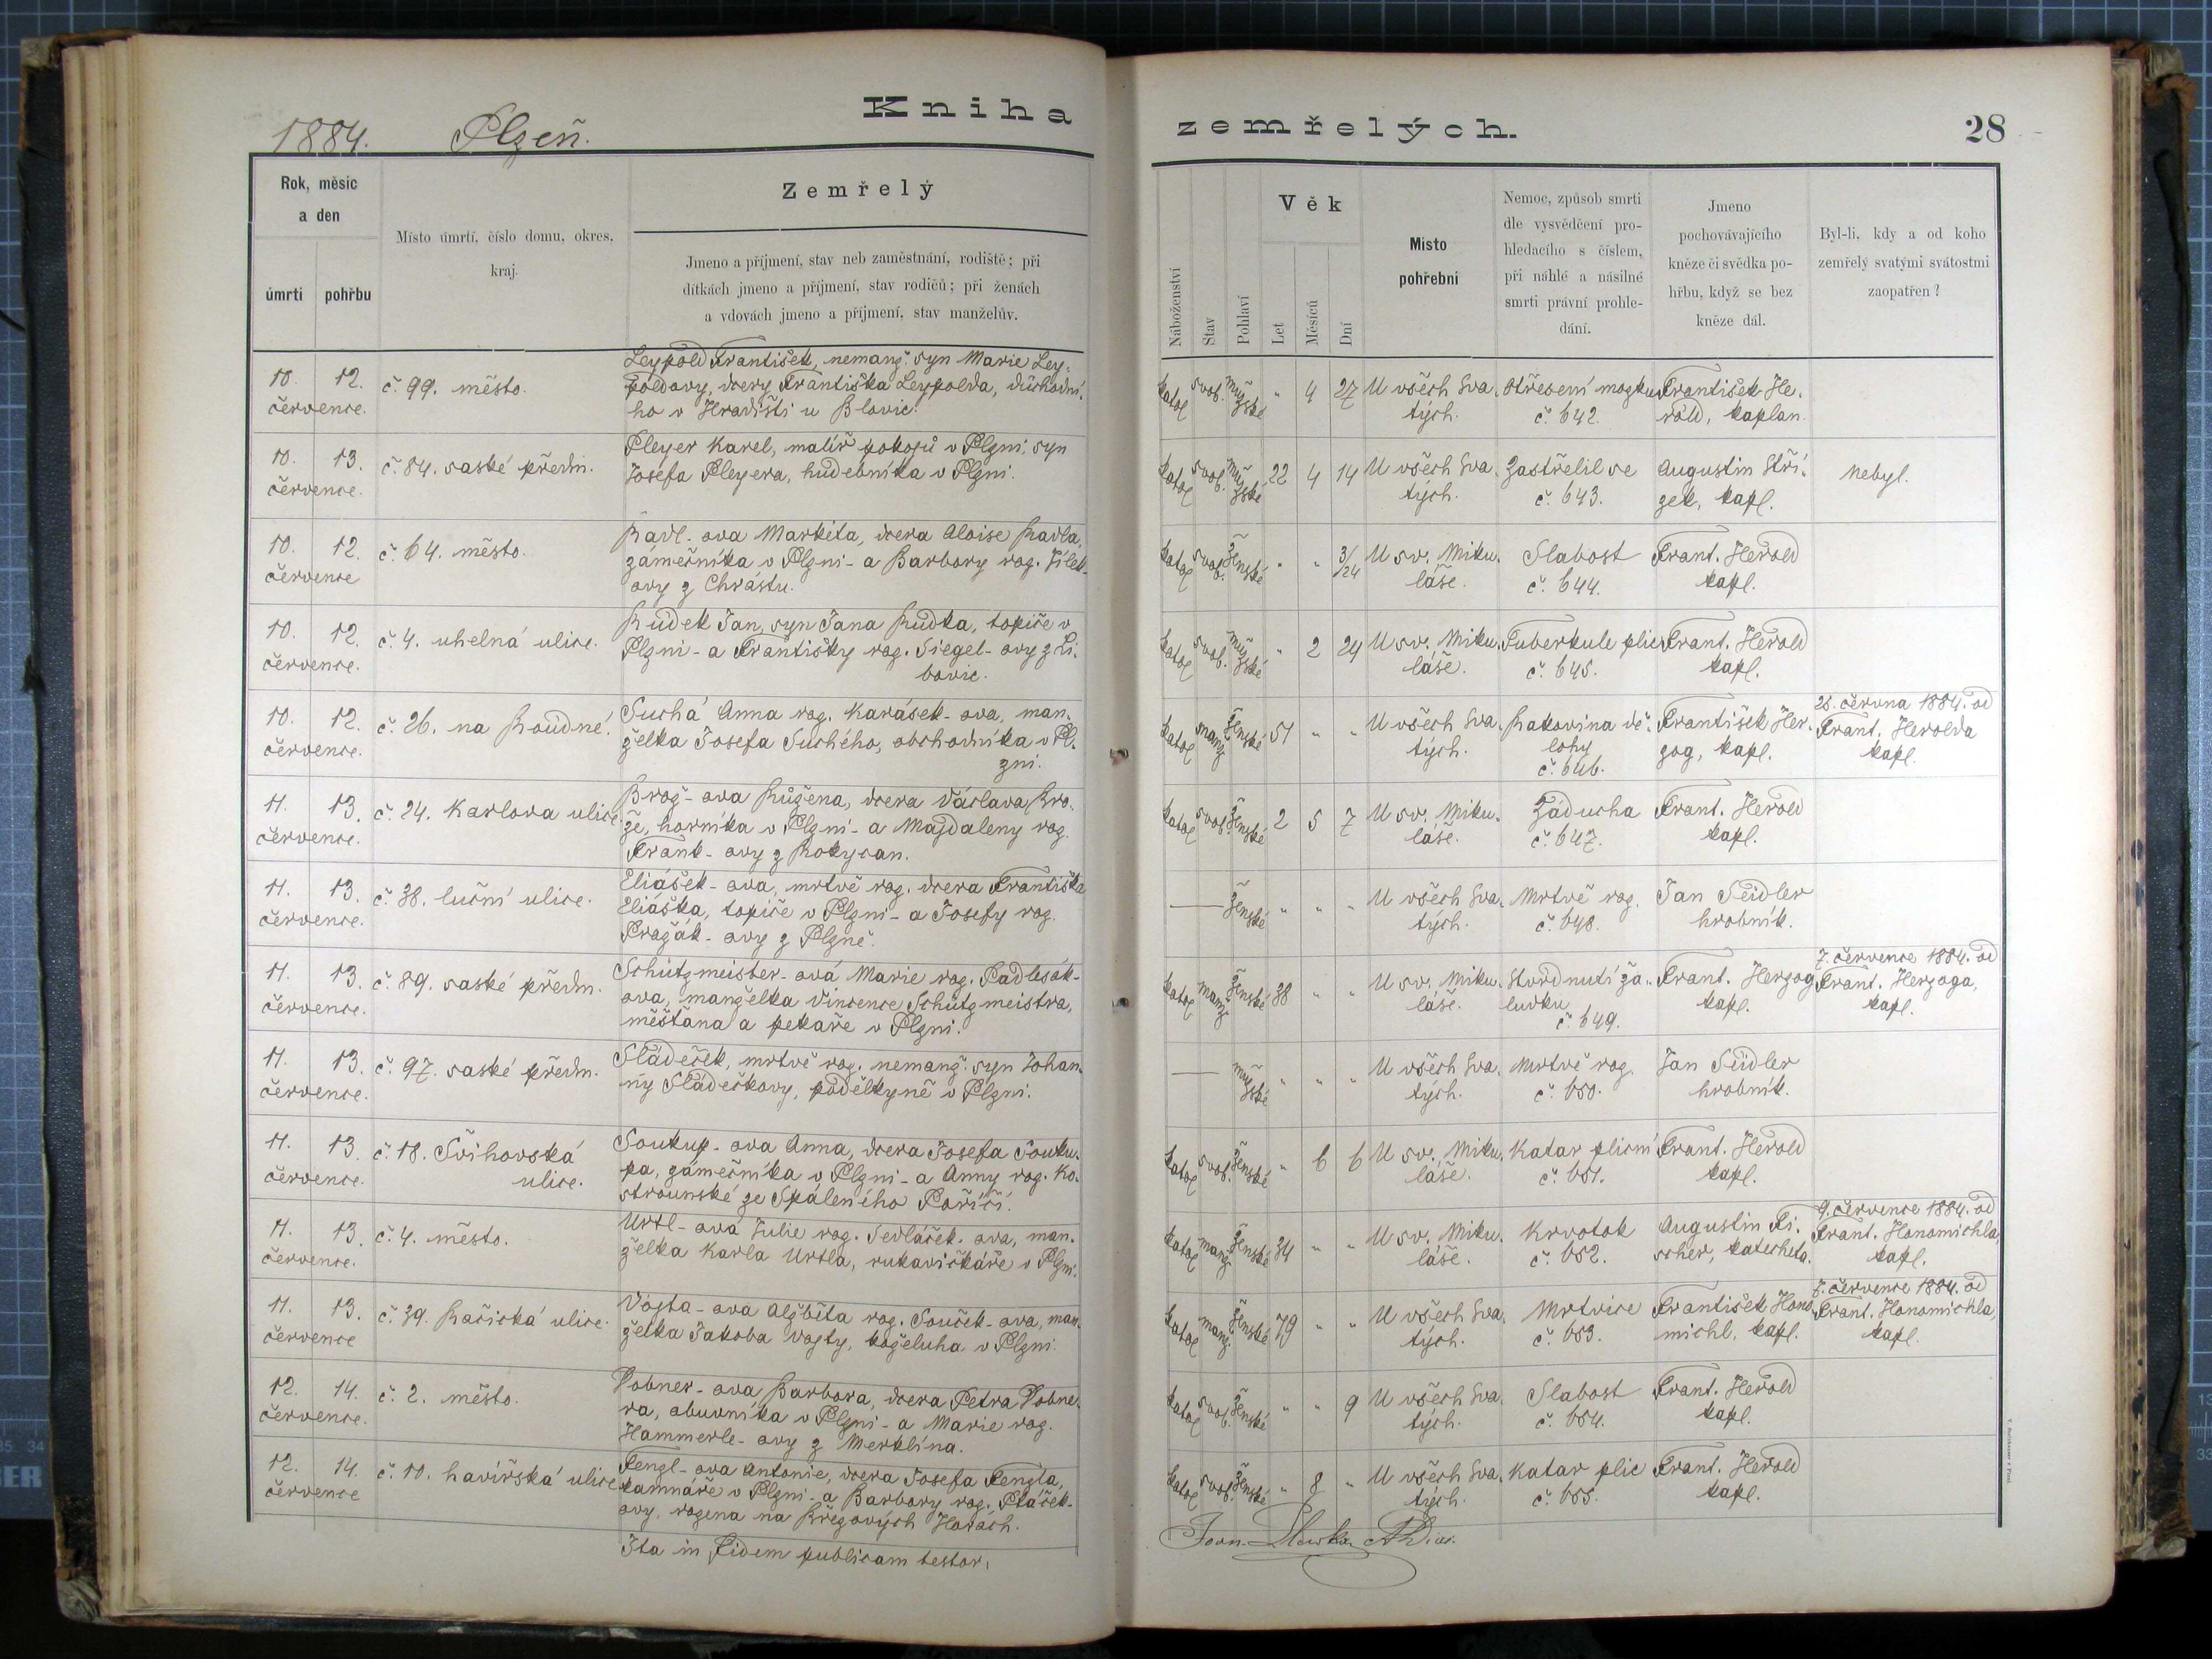 1884. Plzeň.
Kniha
zemřelých.
28
Rok, měsíc
a den
úmrtí
pohřbu
Místo úmrtí, číslo domu, okres,
kraj.
Zemřelý
Jmeno a příjmení, stav neb zaměstnání, rodiště; při
dítkách jmeno a příjmení, stav rodičů; při ženách
a vdovách jmeno a příjmení, stav manželův.
Náboženství
Stav
Pohlaví
Věk
Let
Měsíců
Dní
Místo
pohřební
Nemoc, způsob smrti
dle vysvědčení pro-
hledacího s číslem,
při náhlé a násilné
smrti právní prohle-
dání.
Jmeno
pochovávajícího
kněze či svědka po-
hřbu, když se bez
kněze dál.
Byl-li, kdy a od koho
zemřelý svatými svátostmi
zaopatřen?
10. 12.
července.
č. 99. město.
Leypold František, nemanž. syn Marie Ley-
poldovy, dcery Františka Leypolda, důchodní-
ho v Hradišti u Blovic.
katol svob. mužské " 4 27
U všech Sva-
tých.
Otřesení mozku
č. 642.
František He-
rold, kaplan.
10. 13.
července.
č. 84. saské předm.
Pleyer Karel, malíř pokojů v Plzni, syn
Josefa Pleyera, hudebníka v Plzni.
katol svob. mužské 22 4 14
U všech Sva-
tých.
Zastřelil se
č. 643.
Augustin Stří-
zek, kapl.
Nebyl.
10. 12.
července
č. 64. město.
Radl-ova Markéta, dcera Aloise Radla,
zámečníka v Plzni - a Barbory roz. Vílek-
ovy z Chrástu.
katol svob. ženské " " 3/24
U sv. Miku-
láše.
Slabost
č. 644.
Frant. Herold
kapl.
10. 12.
července.
č. 4. uhelná ulice.
Rudek Jan, syn Jana Rudka, topiče v
Plzni - a Františky roz. Siegel-ovy z Li-
bovic.
katol svob. mužské " 2 24
U sv. Miku-
láše.
Tuberkule plic
č. 645.
Frant. Herold
kapl.
10. 12.
července.
č. 26. na Roudné.
Suchá Anna roz. Karásek-ova, man-
želka Josefa Suchého, obchodníka v Pl-
zni.
katol manž. ženské 51 " "
U všech Sva-
tých.
Rakovina dě-
lohy
č. 646.
František Her-
zog, kapl.
28. června 1884. od
Frant. Herolda
kapl.
11. 13.
července.
č. 24. Karlova ulice
Brož-ova Růžena, dcera Václava Bro-
že, horníka v Plzni - a Majdaleny roz.
Frank-ovy z Rokycan.
katol svob. ženské 2 5 7
U sv. Miku-
láše.
Záducha
č. 647.
Frant. Herold
kapl.
11. 13.
července.
č. 38. luční ulice.
Eliášek-ova, mrtvě roz. dcera Františka
Eliáška, topiče v Plzni - a Josefy roz.
Pražák-ovy z Plzně.
— ženské " " "
U všech Sva-
tých.
Mrtvě roz.
č. 648.
Jan Seidler
hrobník.
11. 13.
července.
č. 89. saské předm.
Schützmeister-ová Marie roz. Padlesák-
ova, manželka Vincence Schützmeistra,
měšťana a pekaře v Plzni.
katol manž. ženské 38 " "
U sv. Miku-
láše.
Stvrdnutí ža-
ludku
č. 649.
Frant. Herzog
kapl.
7. července 1884. od
Frant. Herzoga,
kapl.
11. 13.
července.
č. 97. saské předm.
Sládeček, mrtvě roz. nemanž. syn Johan-
ny Sládečkovy, poděLkyně v Plzni.
— mužské " " "
U všech Sva-
tých.
Mrtvě roz.
č. 650.
Jan Seidler
hrobník.
11. 13.
července.
č. 18. Švihovská
ulice.
Soukup-ova Anna, dcera Josefa Souku-
pa, zámečníka v Plzni - a Anny roz. Ko-
strounské ze Spáleného Poříčí.
katol svob. ženské " 6 6
U sv. Miku-
láše.
Katar plicní
č. 651.
Frant. Herold
kapl.
11. 13.
července.
č. 4. město.
Urtl-ová Julie roz. Sedláček-ova, man-
želka Karla Urtla, rukavičkáře v Plzni.
katol manž. ženské 34 " "
U sv. Miku-
láše.
Krvotok
č. 652.
Augustin Fi-
scher, katecheta.
9. července 1884. od
Frant. Honomichla,
kapl.
11. 13.
července
č. 39. Račická ulice.
Vojta-ova Alžběta roz. Souček-ova, man-
želka Jakoba Vojty, koželuha v Plzni.
katol manž. ženské 79 " "
U všech Sva-
tých.
Mrtvice
č. 653.
František Hono-
michl, kapl.
7. července 1884. od
Frant. Honomichla,
kapl.
12. 14.
července.
č. 2. město.
Dobner-ova Barbora, dcera Petra Dobne-
ra, obuvníka v Plzni - a Marie roz.
Hammerle-ovy z Merklína.
katol svob. ženské " " 9
U všech Sva-
tých.
Slabost
č. 654.
Frant. Herold
kapl.
12. 14.
července
č. 10. havířská ulice
Fengl-ova Antonie, dcera Josefa Fengla,
kamnáře v Plzni - a Barbory roz. Ptáček-
ovy, rozena na Březových Horách.
katol svob. ženské " 8 "
U všech Sva-
tých.
Katar plic
č. 655.
Frant. Herold
kapl.
Ita in fidem publicam testor,